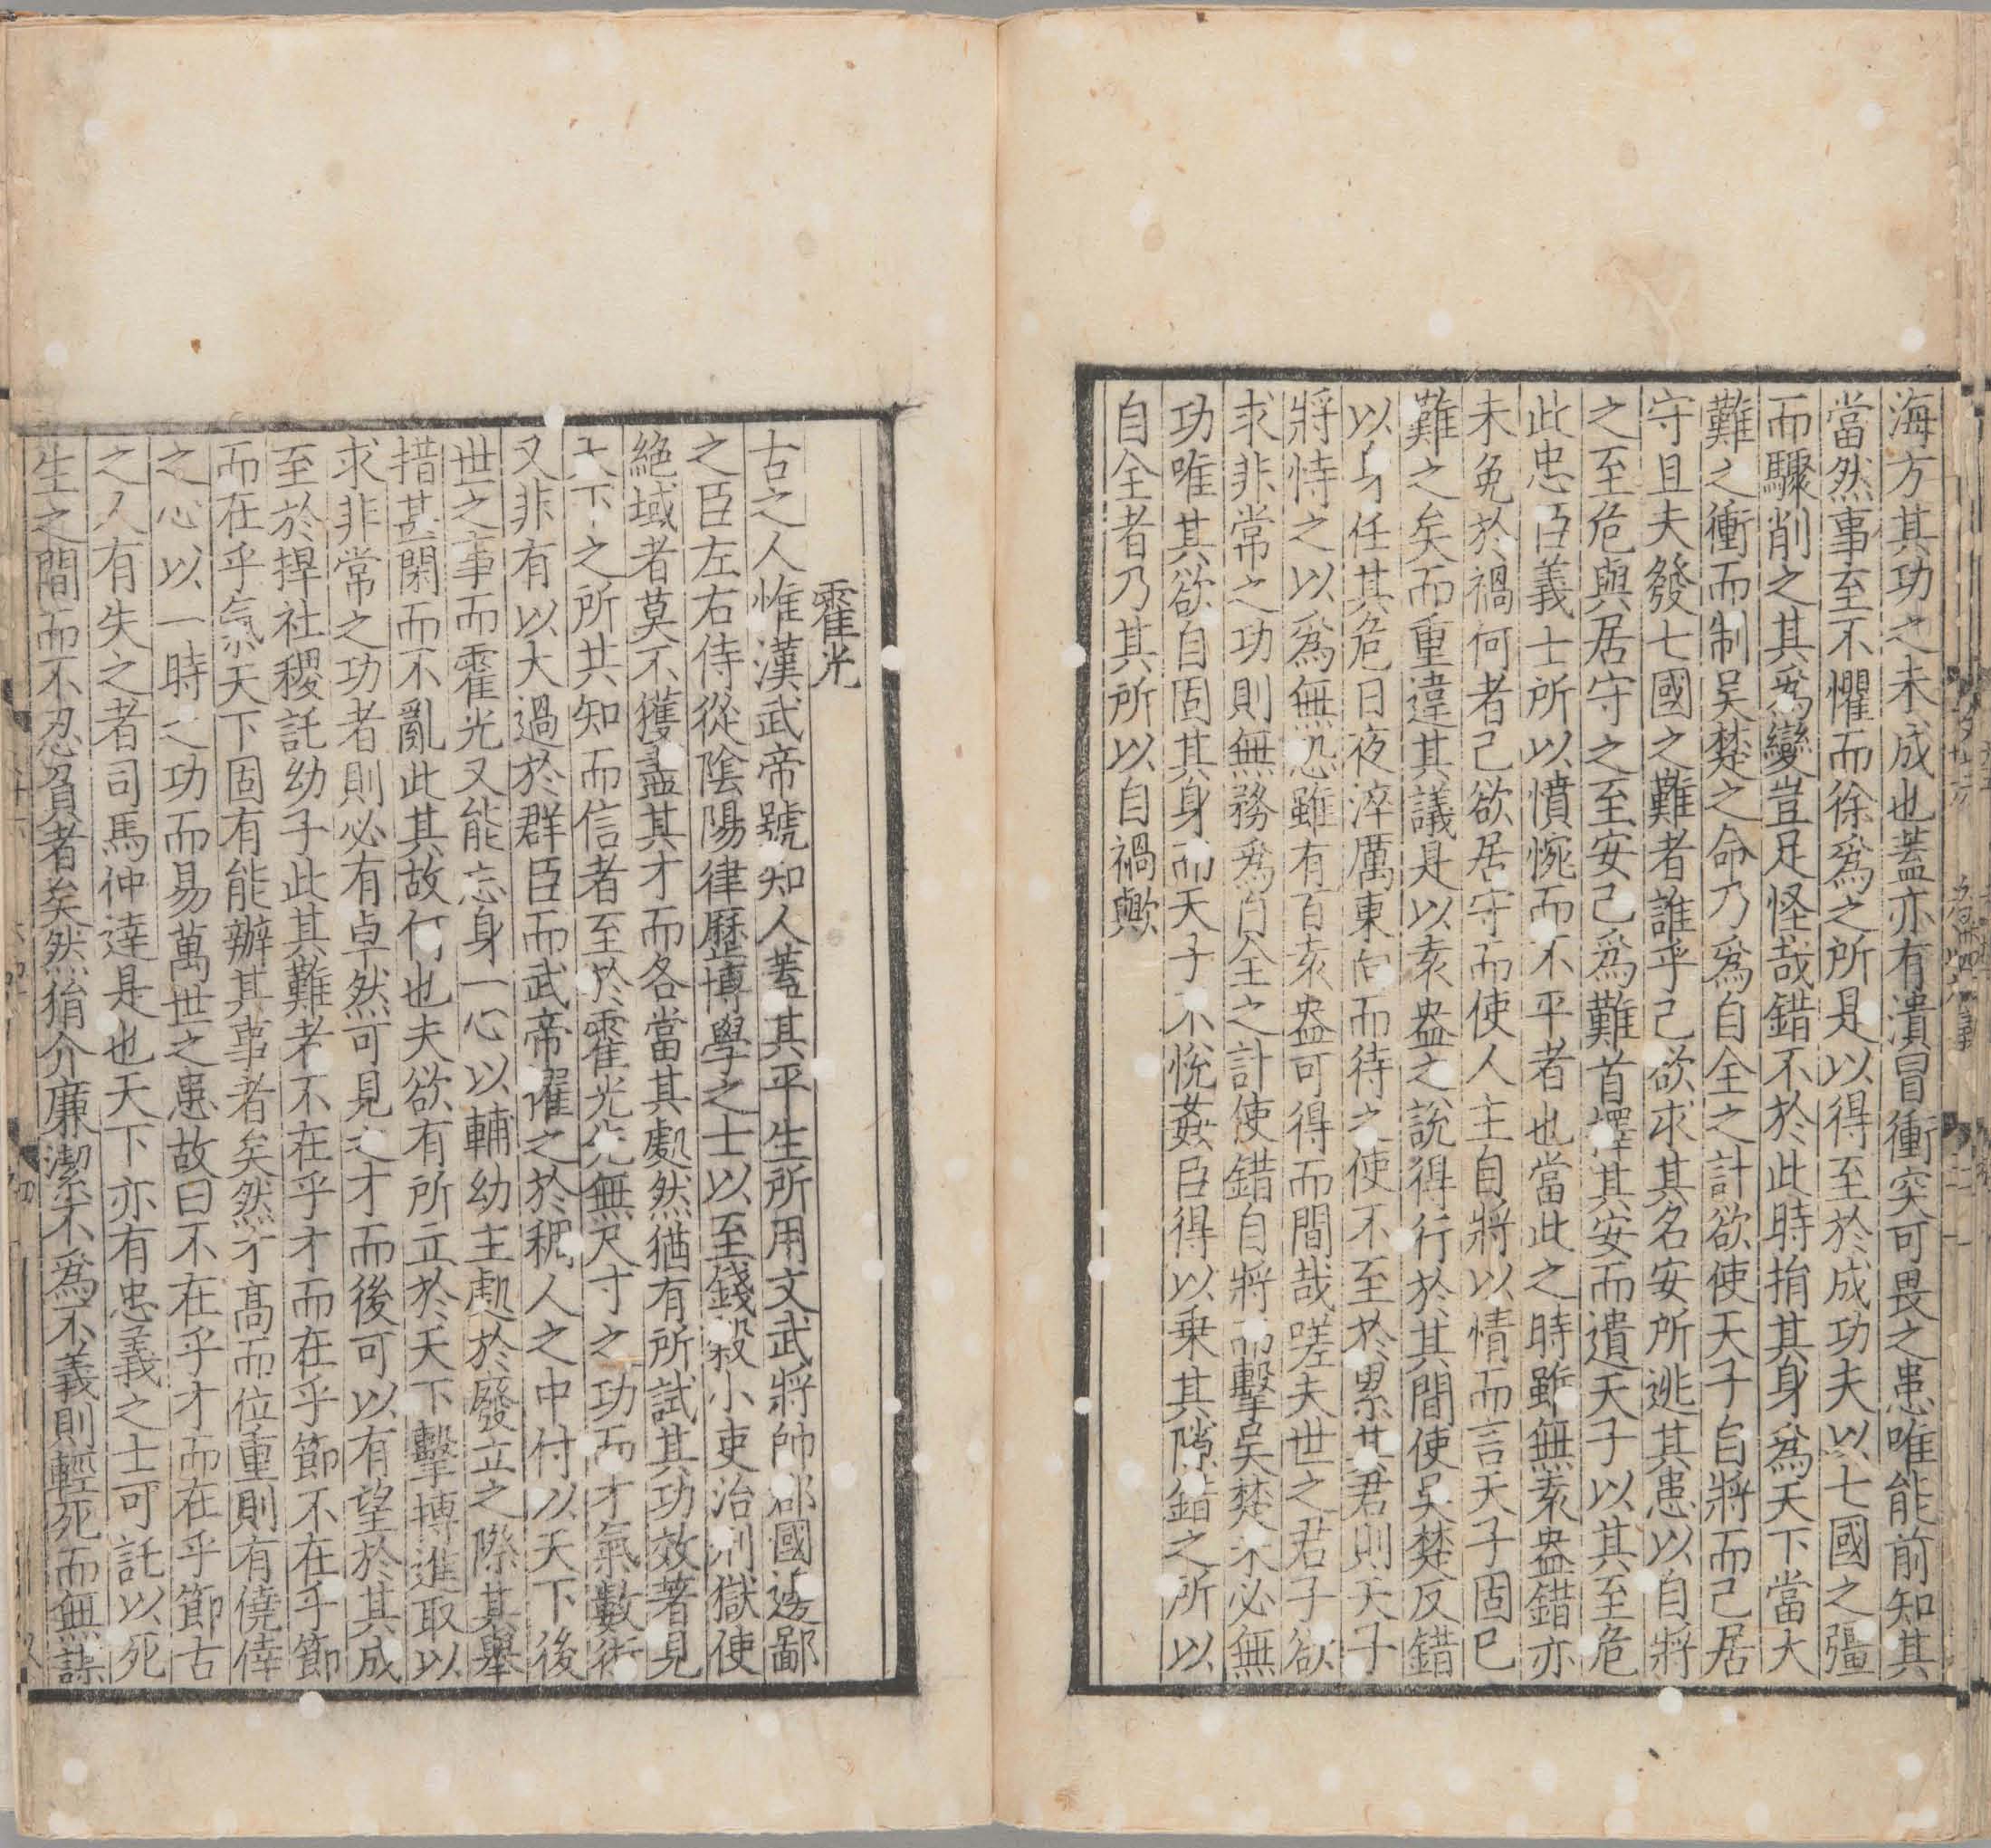 海方其功之未成也蓋亦有潰冒衝突可畏之患唯能前知其
當然事至不懼而徐爲之所是以得至於成功夫以七國之彊
而驟削之其爲變豈足怪哉錯不於此時捐其身爲天下當大
難之衝而制吴楚之命乃爲自全之計欲使天子自將而己居
守且夫發七國之難者誰乎己欲求其名安所逃其患以自將
之至危與居守之至安己爲難首擇其安而遺天子以其至危
此忠臣義士所以憤惋而不平者也當此之時雖無袁盎錯亦
未免於禍何者己欲居守而使人主自將以情而言天子固已
難之矣而重違其議是以袁盎之說得行於其間使吴楚反錯
以身任其危日夜淬厲東向而待之使不至於累其君則天子
將恃之以爲無恐雖有百袁盎可得而間哉嗟夫世之君子欲
求非常之功則無務爲自全之計使錯自將而擊吴楚未必無
功唯其欲自固其身而天子不悅姦臣得以乗其隙錯之所以
自全者乃其所以自禍歟
霍光
古之人惟漢武帝號知人蓋其平生所用文武將帥郡國邊鄙
之臣左右侍從陰陽律曆博學之士以至錢穀小吏治刑獄使
絶域者莫不獲盡其才而各當其處然猶有所試其功效著見
天下之所共知而信者至於霍光先無尺寸之功而才氣數術
又非有以大過於群臣而武帝擢之於稠人之中付以天下後
世之事而霍光又能忘身一心以輔幼主處於廢立之際其舉
措甚閑而不亂此其故何也夫欲有所立於天下擊搏進取以
求非常之功者則必有卓然可見之才而後可以有望於其成
至於捍社稷託幼子此其難者不在乎才而在乎節不在乎節
而在乎氣天下固有能辦其事者矣然才高而位重則有僥倖
之心以一時之功而易萬世之患故曰不在乎才而在乎節古
之人有失之者司馬仲達是也天下亦有忠義之士可託以死
生之間而不忍負者矣然狷介廉潔不爲不義則輕死而無謀